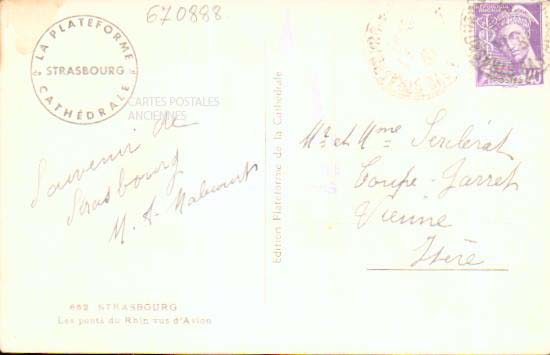 670888
LA PLATEFORME
STRASBOURG
CATHÉDRALE
CARTES POSTALES
ANCIENNES
Souvenir de
Strasbourg
M. Malcourt
662 STRASBOURG
Les ponts du Rhin vus d'Avion
Edition Plateforme de la Cathédrale
Mr et Mme
Coupe-Jarret
Vienne
Isère